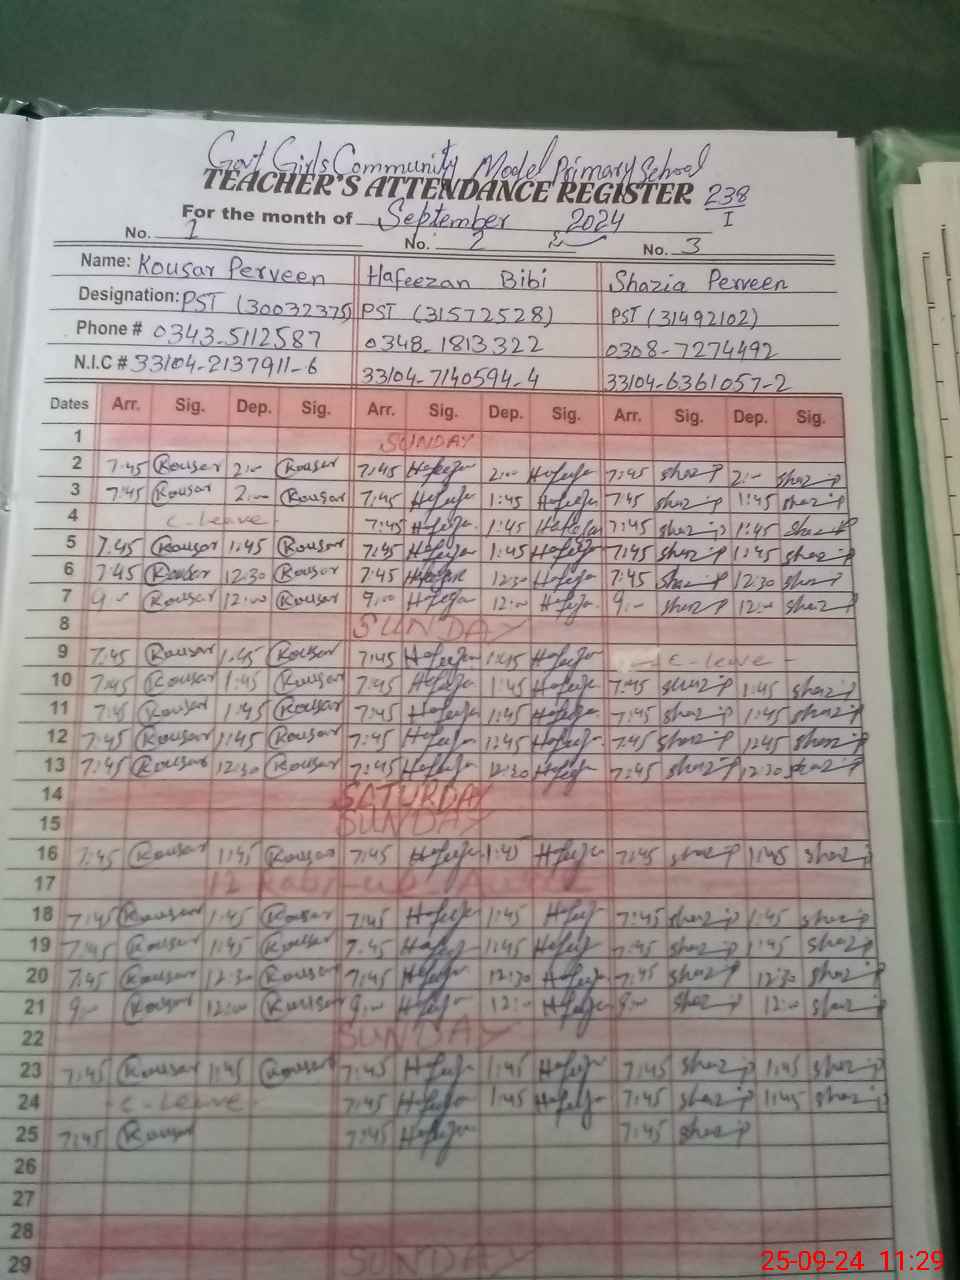 Govt Girls Community Model Primary School
TEACHER'S ATTENDANCE REGISTER 238/I
For the month of September 2024
No. 1 No. 2 No. 3
Name: Kousar Perveen Hafeezan Bibi Shazia Perveen
Designation: PST (30032375) PST (31572528) PST (31492102)
Phone # 0343-5112587 0348-1813322 0308-7274492
N.I.C # 33104-2137911-6 33104-7140594-4 33104-6361057-2
Dates Arr. Sig. Dep. Sig. Arr. Sig. Dep. Sig. Arr. Sig. Dep. Sig.
1 SUNDAY
2 7:45 Kousar 2:00 Kousar 7:45 Hafeeza 2:00 Hafeeza 7:45 shazip 2:00 shazip
3 7:45 Kousar 2:00 Kousar 7:45 Hafeeza 1:45 Hafeeza 7:45 shazip 1:45 shazip
4 C-leave 7:45 Hafeeza 1:45 Hafeeza 7:45 shazip 1:45 shazip
5 7:45 Kousar 1:45 Kousar 7:45 Hafeeza 1:45 Hafeeza 7:45 shazip 1:45 shazip
6 7:45 Kousar 12:30 Kousar 7:45 Hafeeza 12:30 Hafeeza 7:45 shazip 12:30 shazip
7 9:00 Kousar 12:00 Kousar 9:00 Hafeeza 12:00 Hafeeza 9:00 shazip 12:00 shazip
8 SUNDAY
9 7:45 Kousar 1:45 Kousar 7:45 Hafeeza 1:45 Hafeeza C-leave
10 7:45 Kousar 1:45 Kousar 7:45 Hafeeza 1:45 Hafeeza 7:45 shazip 1:45 shazip
11 7:45 Kousar 1:45 Kousar 7:45 Hafeeza 1:45 Hafeeza 7:45 shazip 1:45 shazip
12 7:45 Kousar 1:45 Kousar 7:45 Hafeeza 1:45 Hafeeza 7:45 shazip 1:45 shazip
13 7:45 Kousar 12:30 Kousar 7:45 Hafeeza 12:30 Hafeeza 7:45 shazip 12:30 shazip
14 SATURDAY
15 SUNDAY
16 7:45 Kousar 1:45 Kousar 7:45 Hafeeza 1:45 Hafeeza 7:45 shazip 1:45 shazip
17 12 Rabi-ul-Awal
18 7:45 Kousar 1:45 Kousar 7:45 Hafeeza 1:45 Hafeeza 7:45 shazip 1:45 shazip
19 7:45 Kousar 1:45 Kousar 7:45 Hafeeza 1:45 Hafeeza 7:45 shazip 1:45 shazip
20 7:45 Kousar 12:30 Kousar 7:45 Hafeeza 12:30 Hafeeza 7:45 shazip 12:30 shazip
21 9:00 Kousar 12:00 Kousar 9:00 Hafeeza 12:00 Hafeeza 9:00 shazip 12:00 shazip
22 SUNDAY
23 7:45 Kousar 1:45 Kousar 7:45 Hafeeza 1:45 Hafeeza 7:45 shazip 1:45 shazip
24 C-Leave 7:45 Hafeeza 1:45 Hafeeza 7:45 shazip 1:45 shazip
25 7:45 Kousar 7:45 Hafeeza 7:45 shazip
26
27
28
29 SUNDAY
25-09-24 11:29